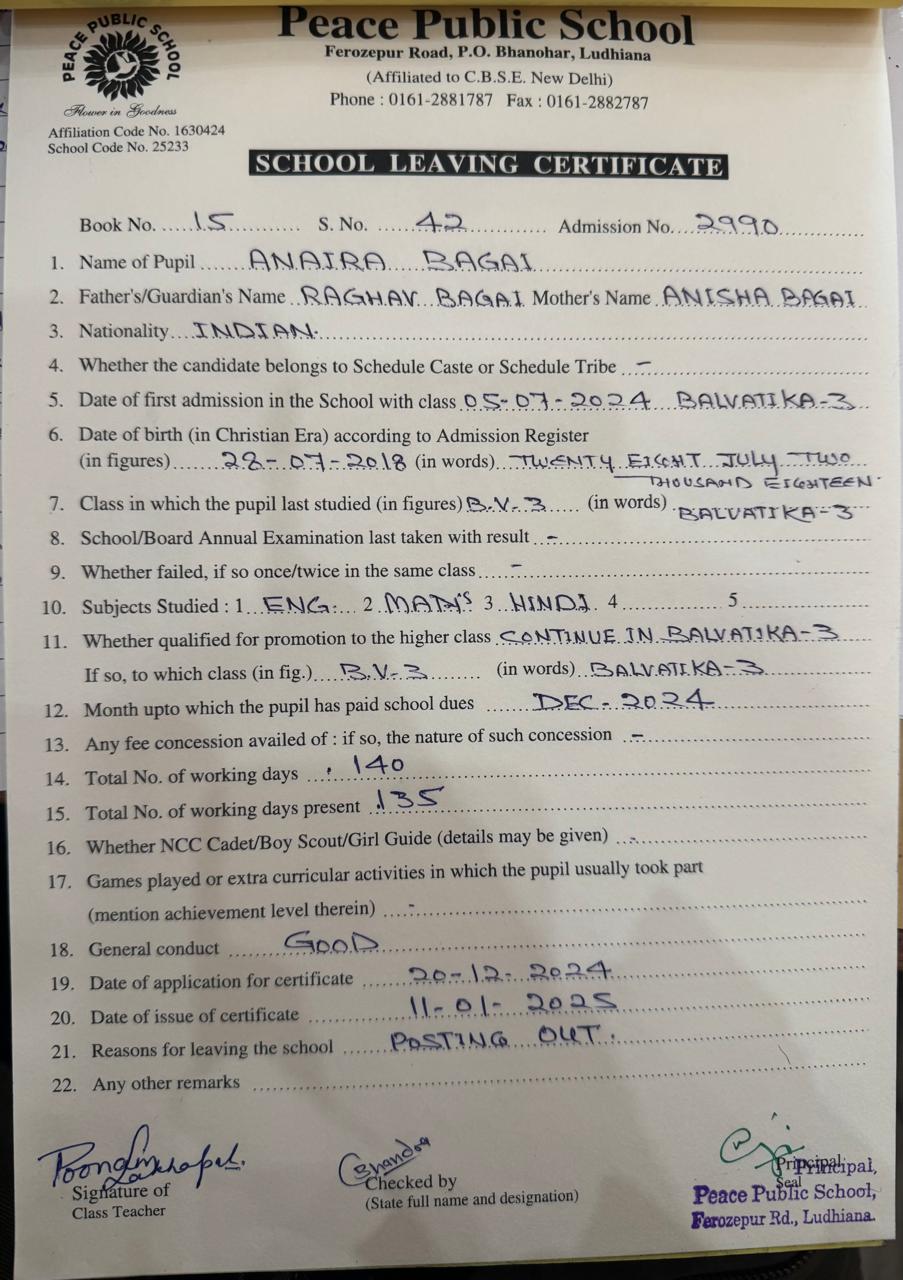 PEACE PUBLIC SCHOOL
Flower in Goodness
Affiliation Code No. 1630424
School Code No. 25233
Peace Public School
Ferozepur Road, P.O. Bhanohar, Ludhiana
(Affiliated to C.B.S.E. New Delhi)
Phone : 0161-2881787 Fax : 0161-2882787
SCHOOL LEAVING CERTIFICATE
Book No. 15 S. No. 42 Admission No. 2990
1. Name of Pupil ANAIRA BAGAI
2. Father's/Guardian's Name RAGHAV BAGAI Mother's Name ANISHA BAGAI
3. Nationality INDIAN.
4. Whether the candidate belongs to Schedule Caste or Schedule Tribe -
5. Date of first admission in the School with class 05-07-2024 BALVATIKA-3
6. Date of birth (in Christian Era) according to Admission Register
(in figures) 28-07-2018 (in words) TWENTY EIGHT JULY TWO
THOUSAND EIGHTEEN.
7. Class in which the pupil last studied (in figures) B.V.3 (in words) BALVATIKA-3
8. School/Board Annual Examination last taken with result -
9. Whether failed, if so once/twice in the same class -
10. Subjects Studied : 1 ENG. 2 MATH'S 3 HINDI 4 5
11. Whether qualified for promotion to the higher class CONTINUE IN BALVATIKA-3
If so, to which class (in fig.) B.V-3 (in words) BALVATIKA-3
12. Month upto which the pupil has paid school dues DEC-2024
13. Any fee concession availed of : if so, the nature of such concession -
14. Total No. of working days 140
15. Total No. of working days present 135
16. Whether NCC Cadet/Boy Scout/Girl Guide (details may be given) -
17. Games played or extra curricular activities in which the pupil usually took part
(mention achievement level therein) -
18. General conduct GOOD
19. Date of application for certificate 20-12-2024
20. Date of issue of certificate 11-01-2025
21. Reasons for leaving the school POSTING OUT.
22. Any other remarks
Signature of
Class Teacher
Checked by
(State full name and designation)
Principal
Seal
Principal,
Peace Public School,
Ferozepur Rd., Ludhiana.